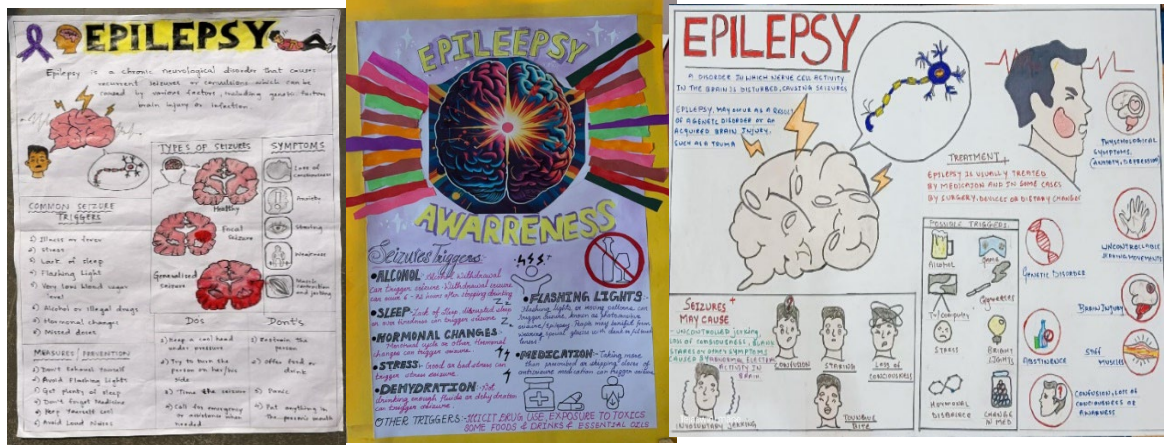 EPILEPSY
Epilepsy is a chronic neurological disorder that causes
recurrent seizures or convulsions which can be
caused by various factors, including genetic factors
brain injury or infection.
TYPES OF SEIZURES
Healthy
Focal
Seizure
Generalised
seizure
SYMPTOMS
Loss of
consciousness
Anxiety
Staring
Weakness
Muscle
contraction
and jerking
COMMON SEIZURE
TRIGGERS
1) Illness or fever
2) Stress
3) Lack of sleep
4) Flashing Light
5) Very low blood sugar
level
6) Alcohol or illegal drugs
7) Hormonal changes
8) Missed doses
MEASURES / PREVENTION
1) Don't Exhaust Yourself
2) Avoid Flashing Lights
3) Get plenty of sleep
4) Don't forget Medicine
5) Keep Yourself Cool
6) Avoid Loud Noises
Dos
1) Keep a cool head
under pressure
2) Try to turn the
person on his/her
side
3) Time the seizure
4) Call for emergency
or assistance when
needed
Don'ts
1) Restrain the
person
2) Offer food or
drink
3) Panic
4) Put anything in
the person's mouth
EPILEEPSY
AWARRENESS
Seizures Triggers:
ALCOHOL:- Alcohol Withdrawal
can trigger seizure. Withdrawal seizure
can occur 6 - 72 hours after stopping drinking
SLEEP:- Lack of Sleep, disrupted sleep
or over tiredness can trigger seizure.
HORMONAL CHANGES:-
Menstrual cycle or other Hormonal
changes can trigger seizure.
STRESS:- Good or bad stress can
trigger stress seizure.
DEHYDRATION:- Not
drinking enough fluids or dehydration
can trigger seizure.
FLASHING LIGHTS:-
Flashing lights or moving patterns can
trigger seizure, known as Photosensitive
seizure/epilepsy. People may benefit from
wearing special glasses with
MEDICATION:- Taking more
than prescribed or skipping doses of
antiseizure medication can trigger seizure
OTHER TRIGGERS:- ILLICIT DRUG USE, EXPOSURE TO TOXICS
SOME FOODS & DRINKS & ESSENTIAL OILS
EPILEPSY
A DISORDER IN WHICH NERVE CELL ACTIVITY
IN THE BRAIN IS DISTURBED, CAUSING SEIZURES
EPILEPSY MAY OCCUR AS A RESULT
OF A GENETIC DISORDER OR AN
ACQUIRED BRAIN INJURY,
SUCH AS A TRUMA
TREATMENT
EPILEPSY IS USUALLY TREATED
BY MEDICATION AND IN SOME CASES
BY SURGERY, DEVICES OR DIETARY CHANGES
POSSIBLE TRIGGERS
Alcohol
GAME
TV/Computer
STRESS
BRIGHT
LIGHTS
HORMONAL
CHANGE
IN MED
GENETIC DISORDER
ABSTINENCE
PHYSCHOLOGICAL
SYMPTOMS
(ANXIETY, DEPRESSION)
UNCONTROLLABLE
BRAIN INJURY
STIFF
MUSCLES
CONFUSION, LOSS OF
SEIZURES
MAY CAUSE
- UNCONTROLLED JERKING,
LOSS OF CONSIOUSNESS, BLANK
STARES OR OTHER SYMPTOMS
CAUSED BY ABNORMAL ELECTRICAL
ACTIVITY IN
BRAIN.
CONFUSION
STARING
LOSS OF
CONCIOUSNESS
INVOLUNTARY JERKING
TOUNGUE
BITE